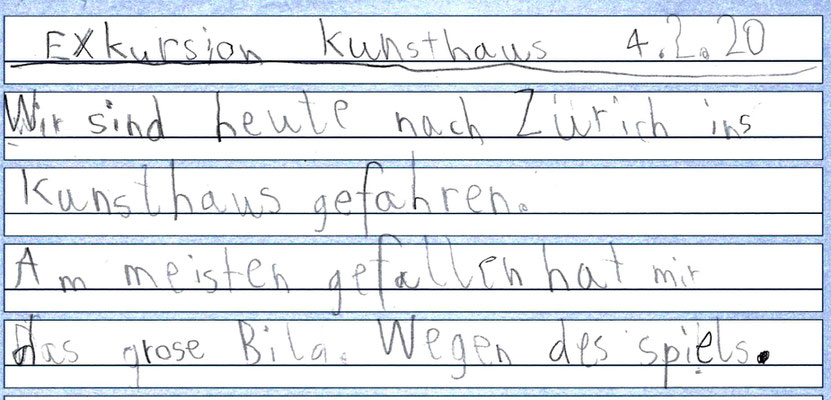 Exkursion Kunsthaus 4.2.20
Wir sind heute nach Zürich ins
Kunsthaus gefahren.
Am meisten gefallen hat mir
das grose Bild. Wegen des spiels.